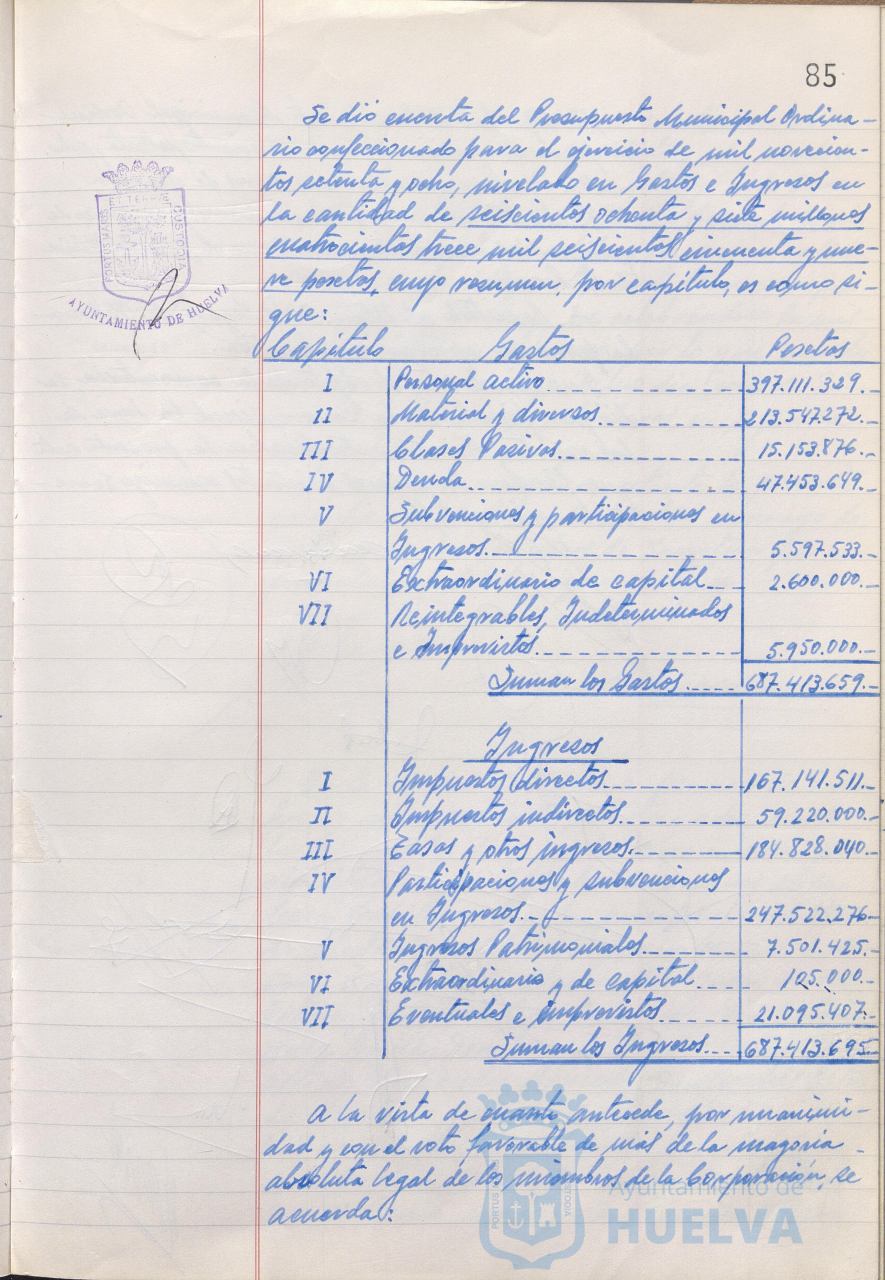 85
Se dió cuenta del Presupuesto Municipal Ordina-
rio confeccionado para el ejercicio de mil novecien-
tos setenta y ocho, nivelado en Gastos e Ingresos en
la cantidad de seiscientos ochenta y siete millones
cuatrocientos trece mil seiscientos cincuenta y nue-
ve pesetas, cuyo resumen, por capítulo, es como si-
gue:
PORTUS MARIS ET TERRE CUSTODIA
AYUNTAMIENTO DE HUELVA
Capítulo Gastos Pesetas
I Personal activo 397.111.329.-
II Material y diversos 213.547.272.-
III Clases Pasivas 15.153.876.-
IV Deuda 47.453.649.-
V Subvenciones y participaciones en
Ingresos 5.597.533.-
VI Extraordinario de capital 2.600.000.-
VII Reintegrables, Indeterminados
e Imprevistos 5.950.000.-
Suman los Gastos 687.413.659.-
Ingresos
I Impuestos directos 167.141.511.-
II Impuestos indirectos 59.220.000.-
III Tasas y otros ingresos 184.828.040.-
IV Participaciones y subvenciones
en Ingresos 247.522.276.-
V Ingresos Patrimoniales 7.501.425.-
VI Extraordinario y de capital 105.000.-
VII Eventuales e imprevistos 21.095.407.-
Suman los Ingresos 687.413.695
A la vista de cuanto antecede, por unanimi-
dad y con el voto favorable de más de la mayoría
absoluta legal de los miembros de la Corporación, se
acuerda:
Ayuntamiento de
HUELVA